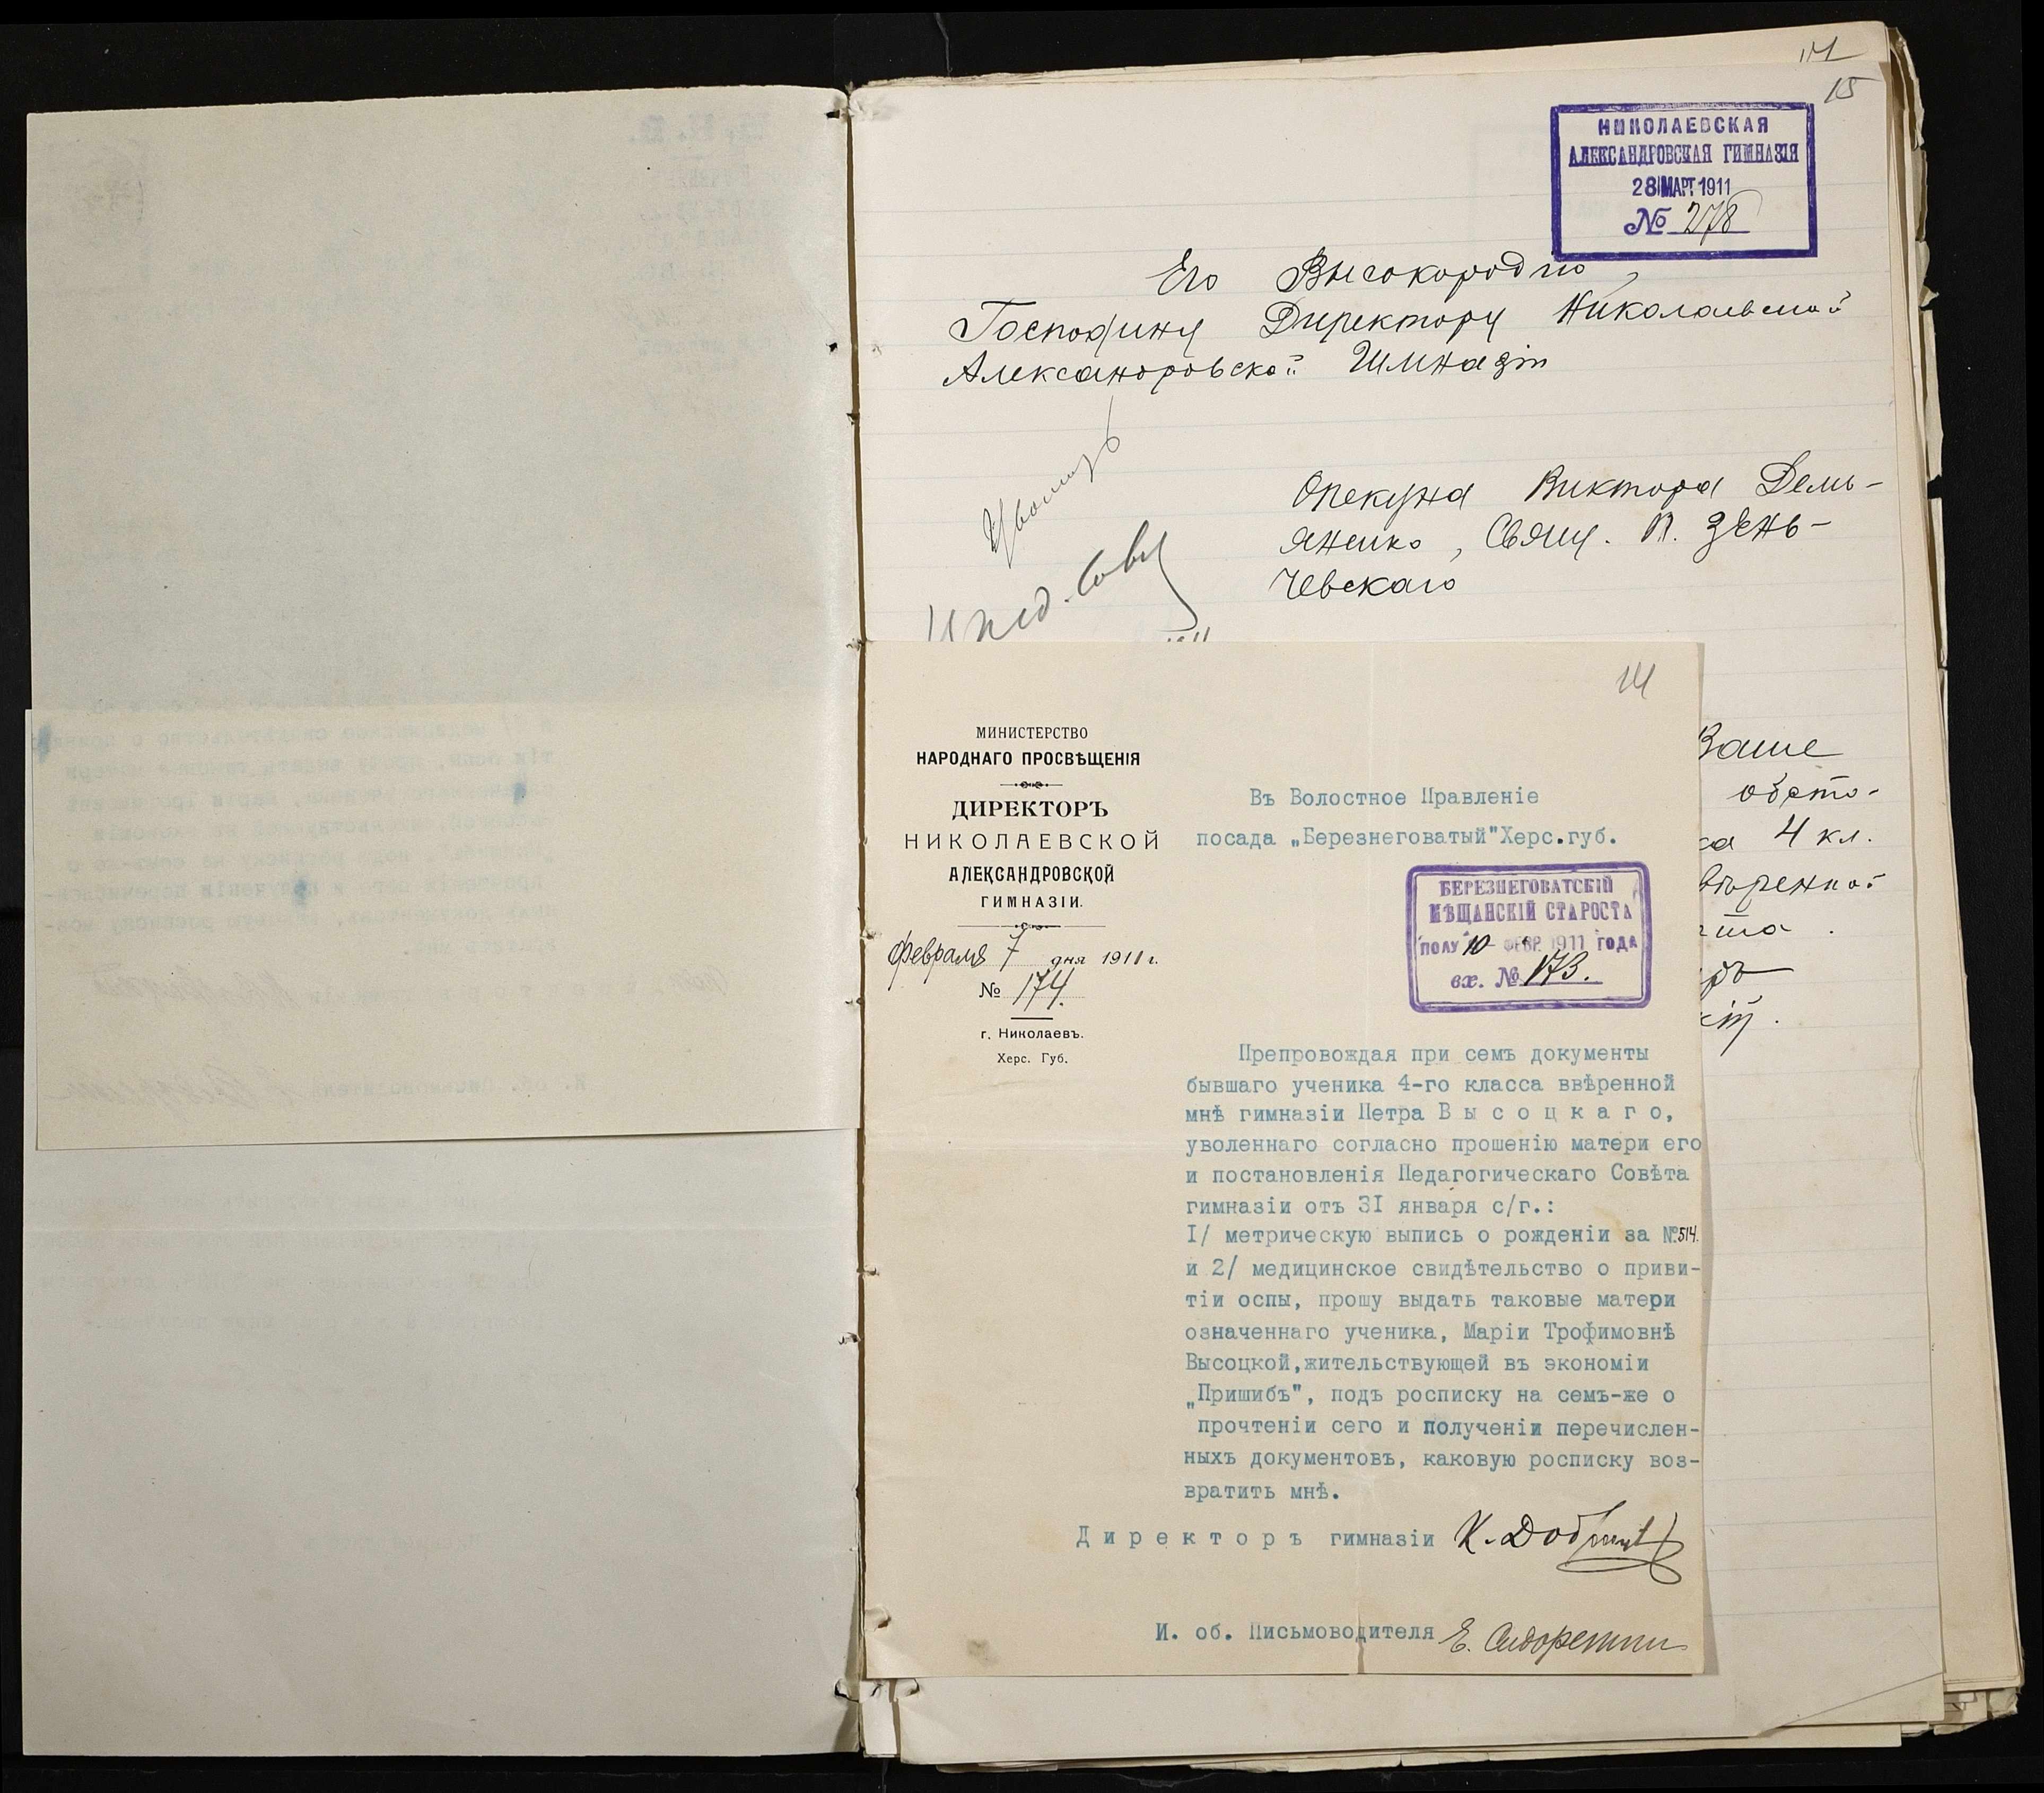 14
15
НИКОЛАЕВСКАЯ
АЛЕКСАНДРОВСКАЯ ГИМНАЗІЯ
28 МАРТ 1911
№ 278
Его Высокородію,
Господину Директору Николаевской
Александровской Гимназіи
Опекуна Виктора Демь-
яненко, Свящ. П. Зѣнь-
чевскаго
Уволить
Пед. Сов.
14
МИНИСТЕРСТВО
НАРОДНАГО ПРОСВѢЩЕНІЯ
ДИРЕКТОРЪ
НИКОЛАЕВСКОЙ
АЛЕКСАНДРОВСКОЙ
ГИМНАЗІИ.
Февраля 7 дня 1911 г.
№ 174.
г. Николаевъ.
Херс. Губ.
Въ Волостное Правленіе
посада „Березнеговатый"Херс.губ.
БЕРЕЗНЕГОВАТСКІЙ
МѢЩАНСКІЙ СТАРОСТА
ПОЛУ 10 ФЕВР. 1911 ГОДА
вх. № 173.
Препровождая при семъ документы
бывшаго ученика 4-го класса ввѣренной
мнѣ гимназіи Петра В ы с о ц к а г о,
уволеннаго согласно прошенію матери его
и постановленія Педагогическаго Совѣта
гимназіи отъ 3I января с/г.:
I/ метрическую выпись о рожденіи за №514.
и 2/ медицинское свидѣтельство о приви-
тіи оспы, прошу выдать таковые матери
означеннаго ученика, Маріи Трофимовнѣ
Высоцкой,жительствующей въ экономіи
„Пришибъ", подъ росписку на семъ-же о
прочтеніи сего и полученіи перечислен-
ныхъ документовъ, каковую росписку воз-
вратить мнѣ.
Д и р е к т о р ъ гимназіи К. Доб
И. об. Письмоводителя Е. Сидоренко
Ваше
обсто-
4 кл.